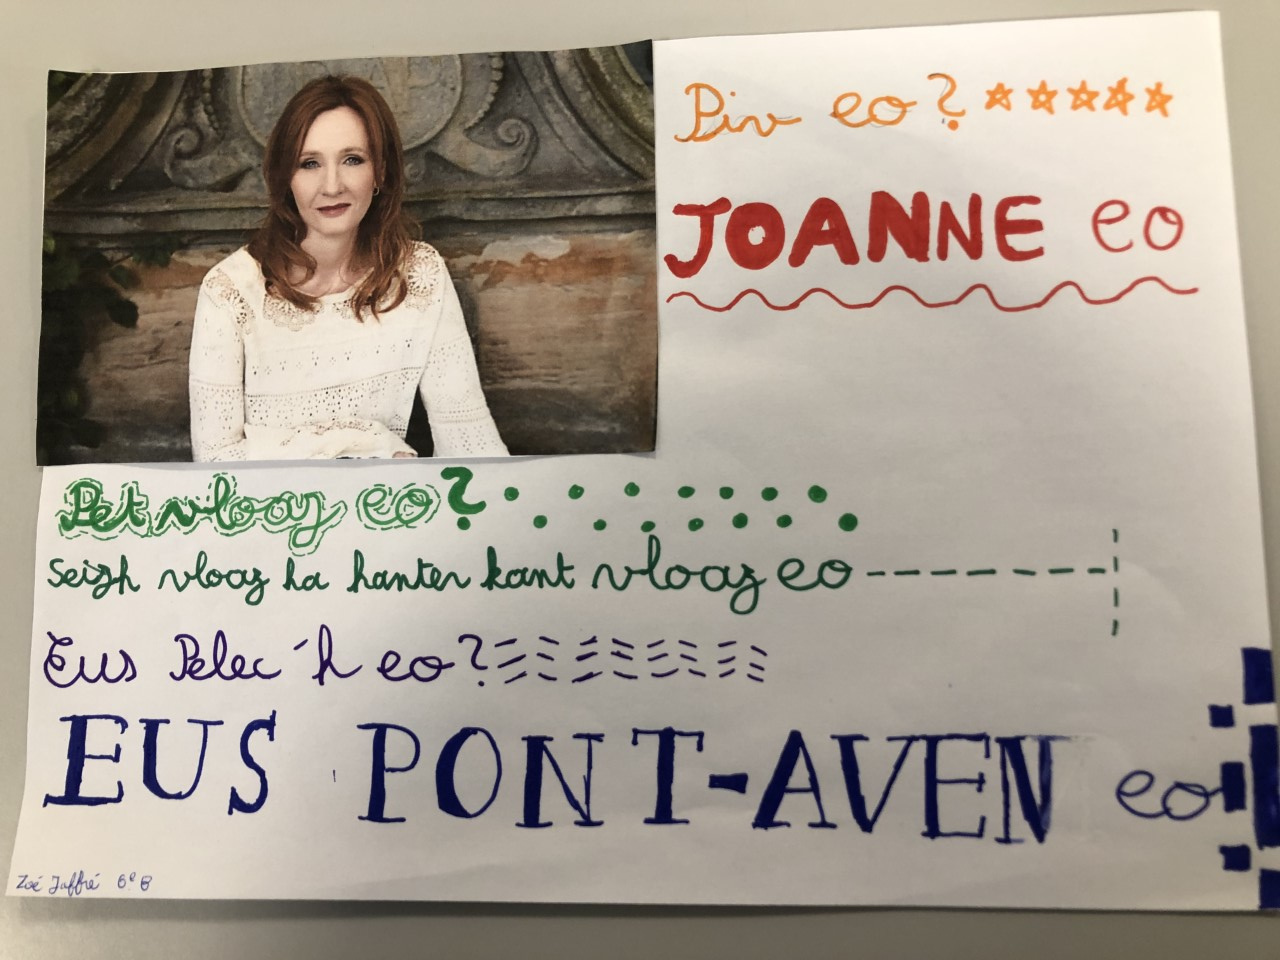 Piv eo?
JOANNE eo
Pet vloaz eo?
seizh vloaz ha hanter kant vloaz eo
Eus Pelec'h eo?
EUS PONT-AVEN eo
Zoé Jaffré 6e B